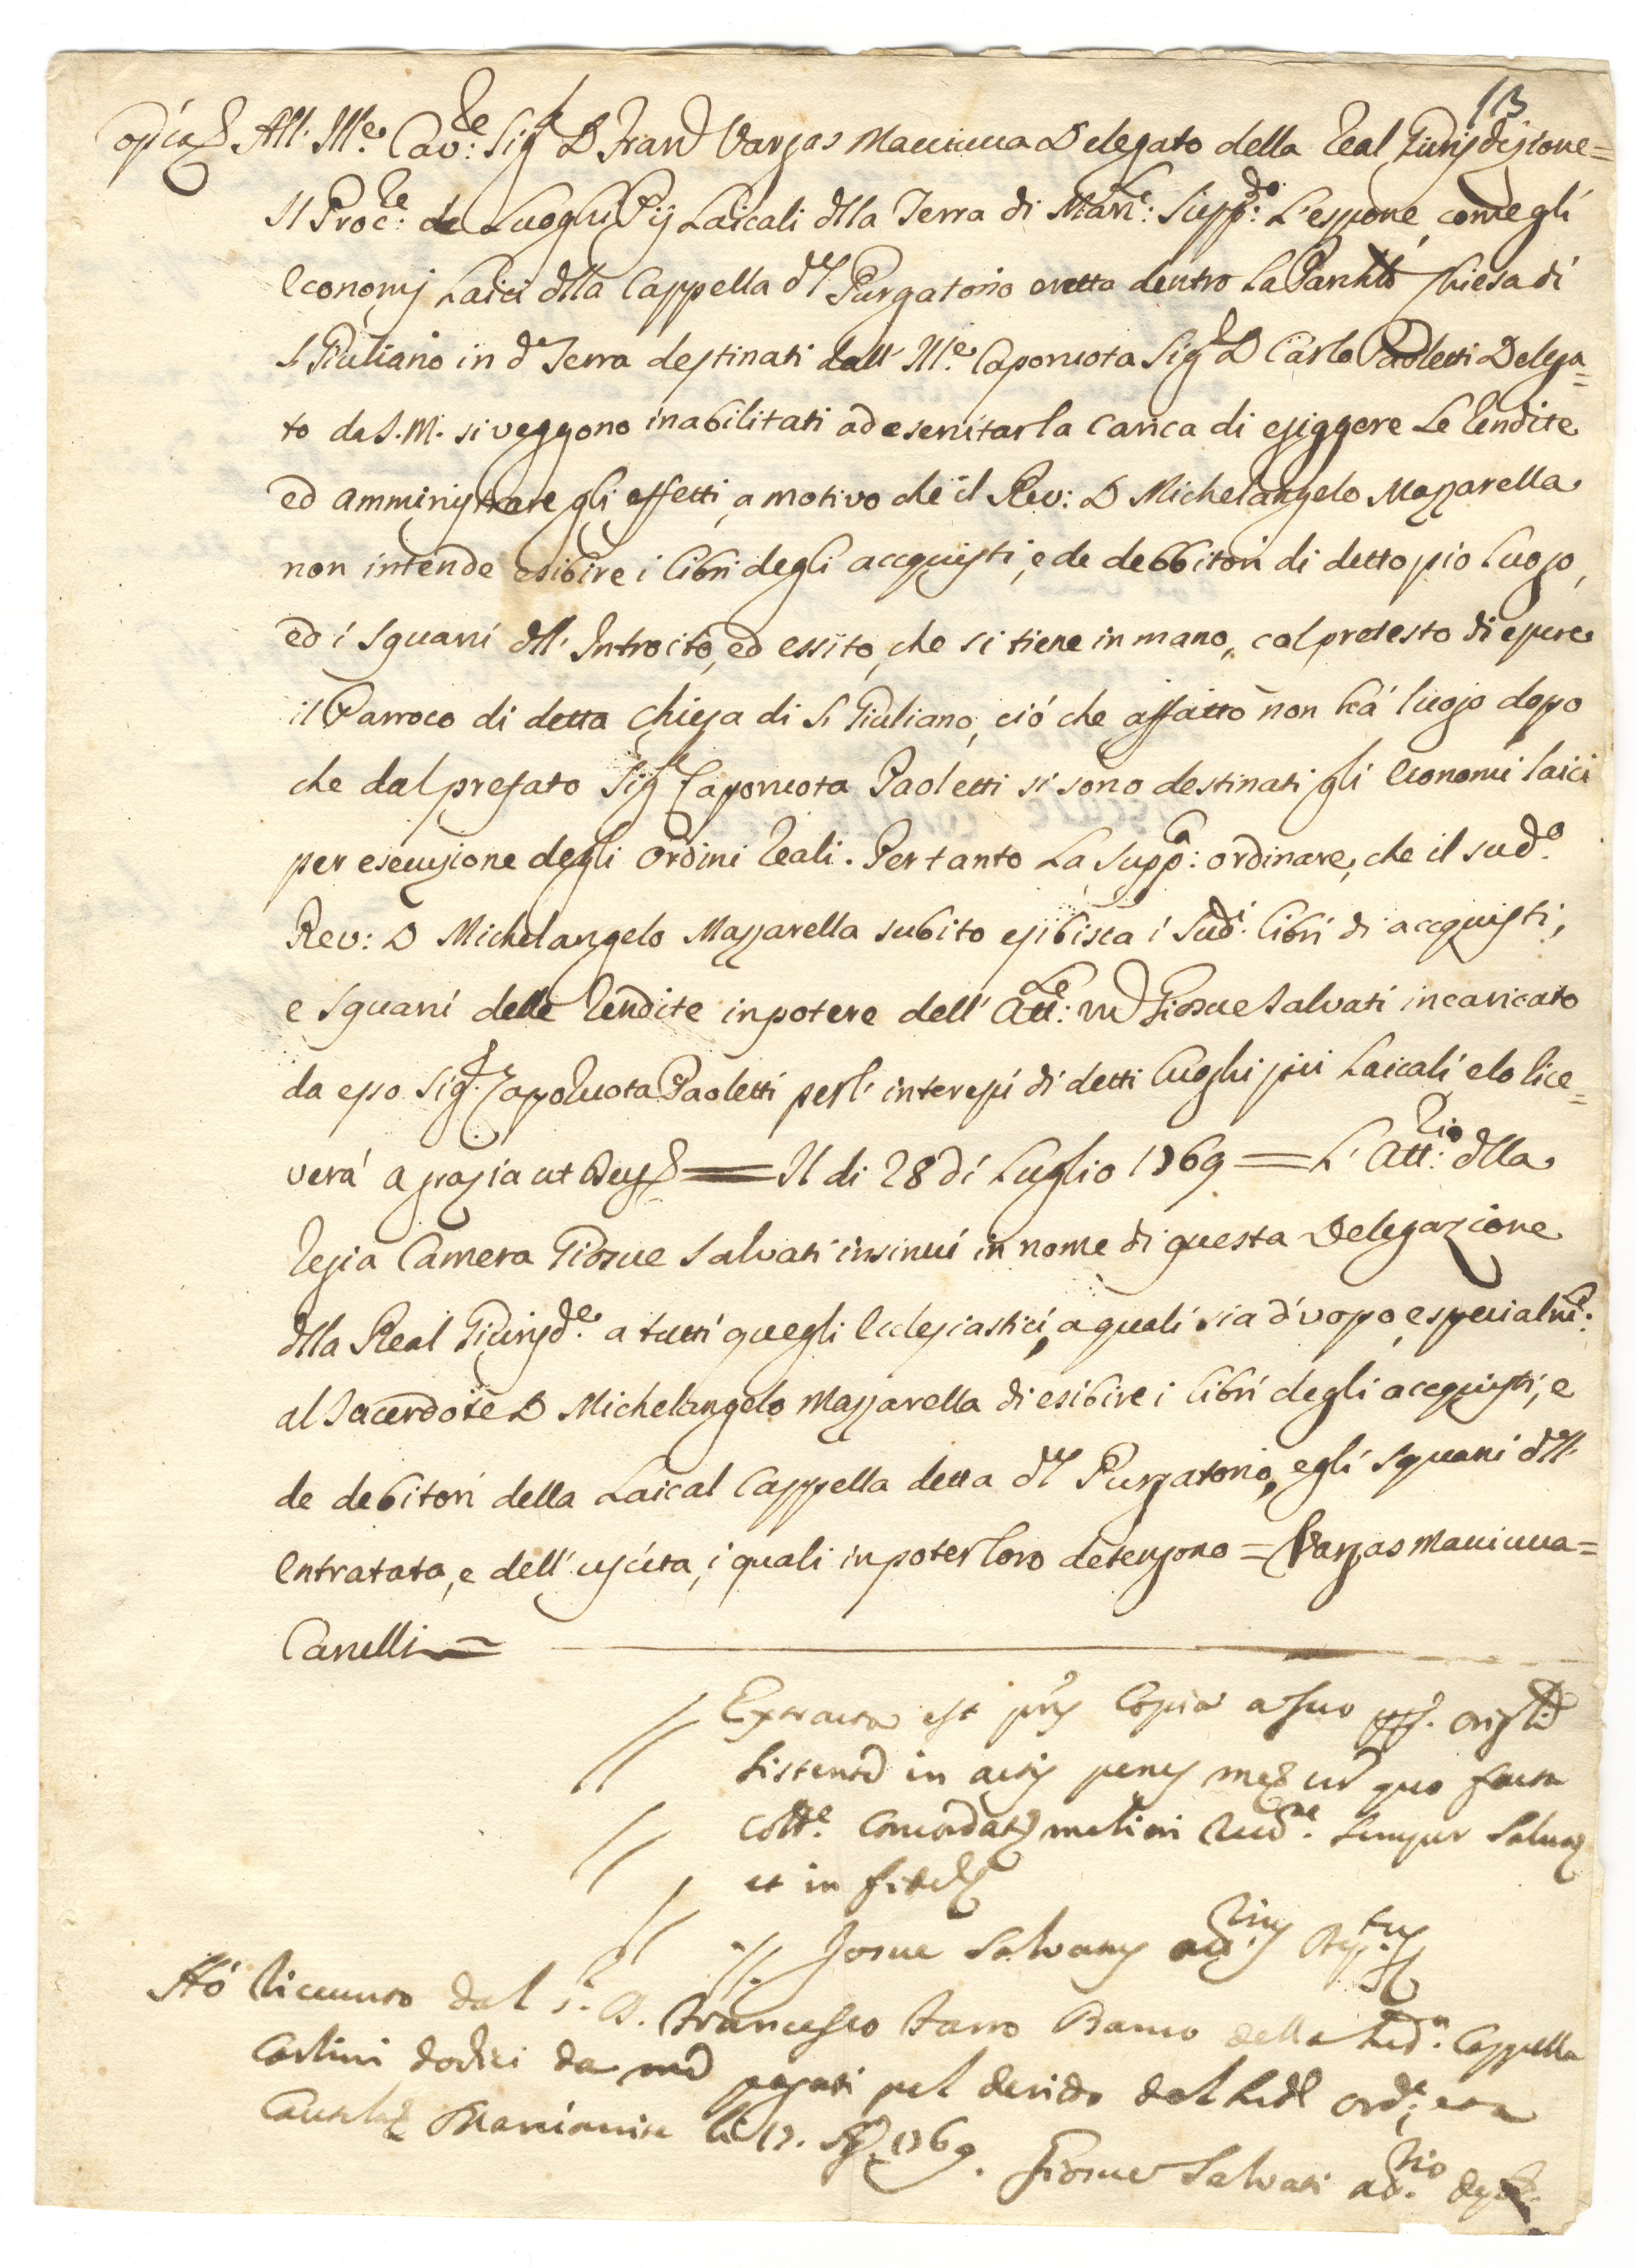 13
Copia All' Ill.e Cav.re Sig.r D Fran.co Vargas Macciucca Delegato della Real Giurisdizione=
Il Proc.re de Luoghi Pij Laicali d.lla Terra di Marc.e: Supp.do: L'espone, come gli
Economj Laici d.lla Cappella d.el Purgatorio eretta dentro La Parchle Chiesa di
S Giuliano in d.a Terra destinati dall' Ill.e Caporuota Sig.r D Carlo Paoletti Delega=
to da S. M. si veggono inabilitati ad esercitar la carica di esiggere Le Rendite
ed amministrare gli effetti, a motivo che il Rev: D Michelangelo Mazzarella
non intende esibire i libri degli accquisti, e de debbitori di detto pio luogo,
ed i squarci d.ll' Introito, ed essito, che si tiene in mano, col pretesto di essere
il Parroco di detta Chiesa di S. Giuliano, ciò che affatto non há luogo dopo
che dal prefato Sig.r Caporuota Paoletti si sono destinati gli economi laici
per esecuzione degli ordini Reali. Per tanto La Supp.ca: ordinare, che il sud.o
Rev: D Michelangelo Mazzarella subito esibisca i sud.i libri di accquisti,
e squarci delle Rendite in potere dell' Att.rio: m.co Giosue Salvati incaricato
da esso Sig.r Capo Ruota Paoletti per l' interessi di detti luoghi pii Laicali e lo rice=
verá a grazia ut Deus = Il di 28 di Luglio 1769 = L' Att.rio: d.lla
Regia Camera Giosue Salvati insinui in nome di questa Delegazione
d.lla Real Giurisd.e a tutti quegli Eclesiastici, a quali sia d'uopo, e specialm.e:
al Sacerdote D Michelangelo Mazzarella di esibire i libri degli accquisti, e
de debitori della Laical Cappella detta d.el Purgatorio, e gli squarci d.ell'
Entratata, e dell' uscita, i quali in poter loro detengono = Vargas Macciucca=
Carelli =
Extracta est pns Copia a suo originali
sistente in actis penes me cum quo facta
coll.e concordat meliori sempre salva
et in fidem
Josue Salvatus act.rius
Hó ricevuto dal S. D. Francesco della sud.a Cappella
Carlini dodici da me pagati pel del sud.o ord.e
Cautela Marcianise li 17. 1769. Giosue Salvati act.rio